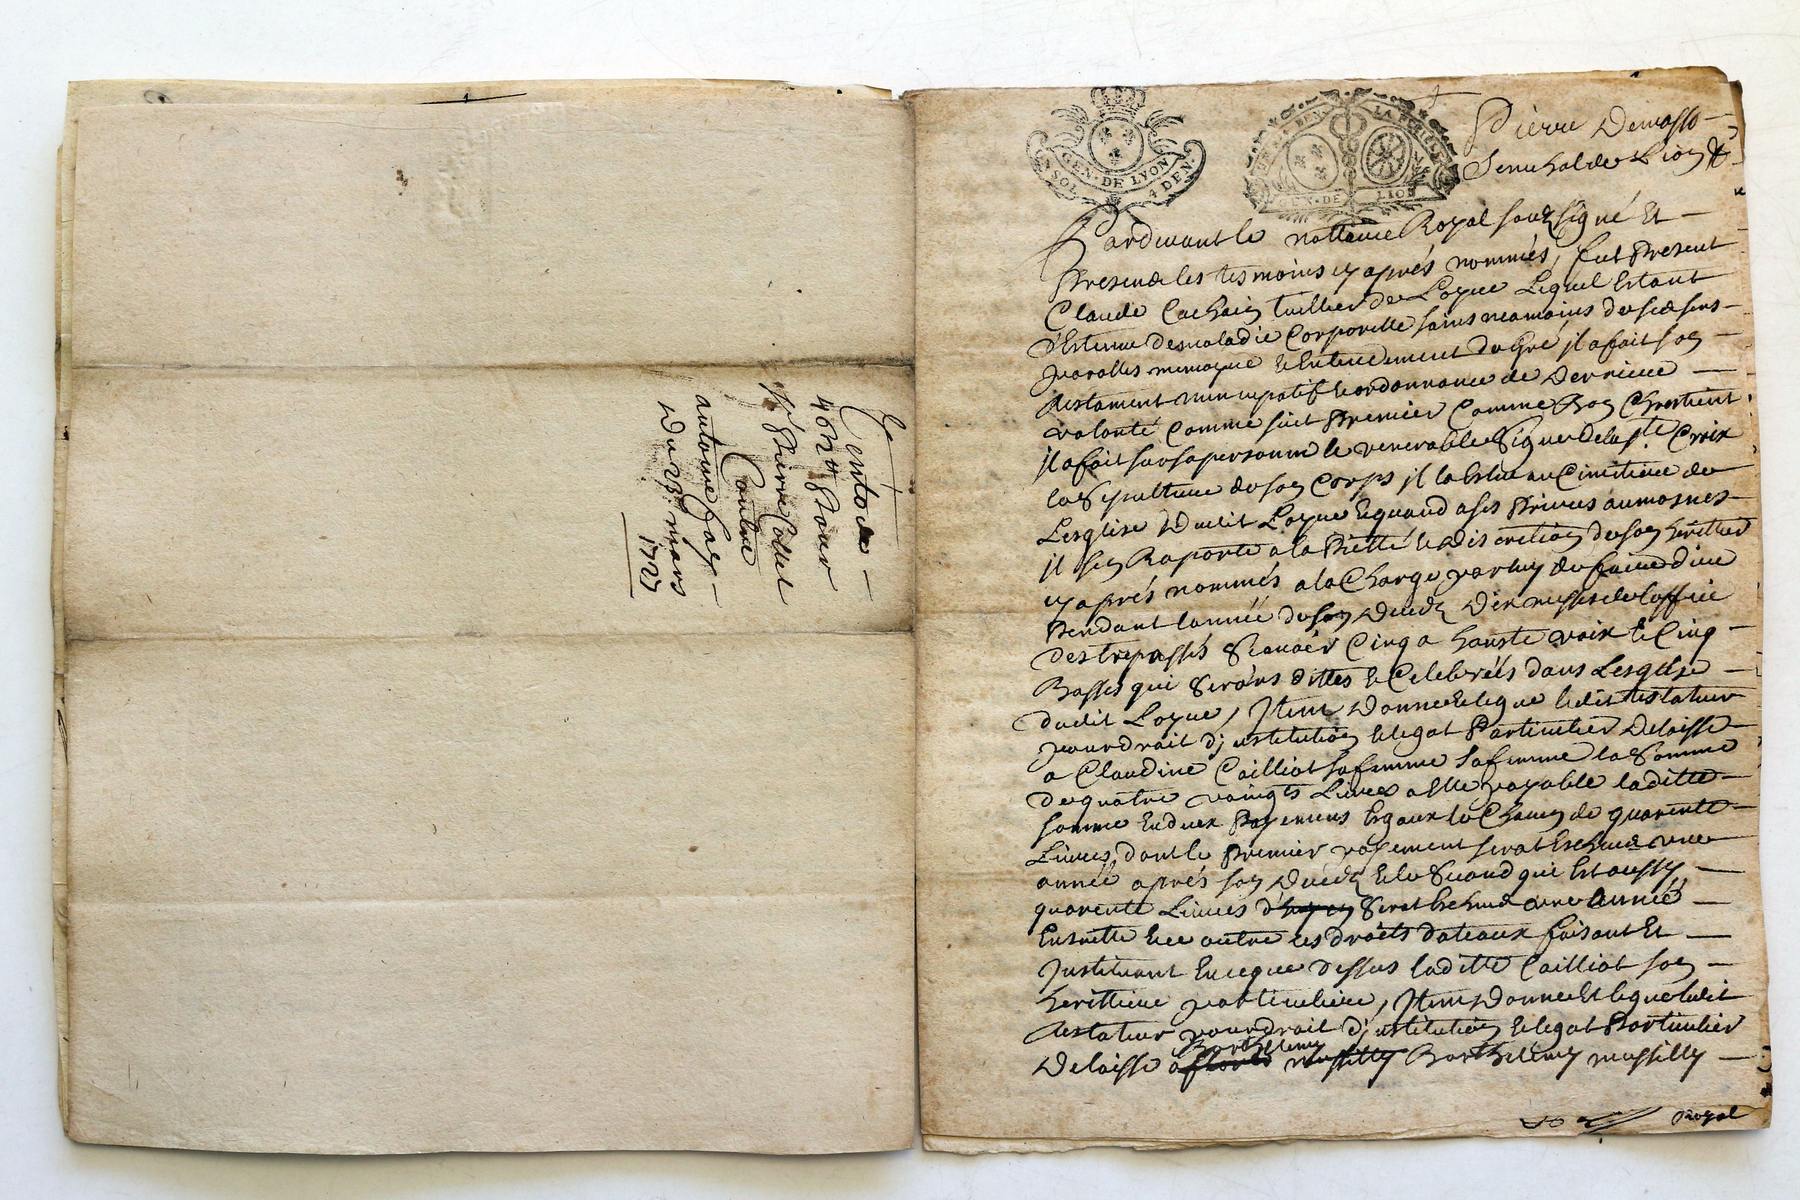 Vente de
462 ## pour
Sr Pierre Collet
Contre
antoine Gay
du 23 mars
1727
GEN. DE LYON
1 SOL. 4 DEN.
LA FEUILLE
GEN. DE LION
Pierre
Senechal de Lion
Pardevant le nottaire Royal soubsigné Et
Presence les tesmoins cy après nommés, fut Present
Claude Cachain tuillier de Loyue Lequel Estant
d'Estenu de maladie Corporelle sains neamoins de ses sens
parolles memoyre et Entendement de Gré il a fait son
testament nuncupatif et ordonnance de Derniere
volonté Comme suit Premier Comme Bon Chrestient
il a fait sur sa personne le venerable Signe de la ste Croix
la Sepulture de son Corps il la Eslue au Cimitiere de
Lesglise dudit Loyue Et quand a ses Prieres aumosnes
il sen Raporte a la Pietté et discretion de son heritier
cy après nommés a la Charge par luy de faire dire
Pendant lannée de son decedz Dix messes de loffice
des trepassés Scavoir Cinq a hauste voix et Cinq
Basses qui Serons dittes et Celebrées dans Lesglise
dudit Loyue, Item Donne et legue ledit testateur
pour droit d'institution et legat Particulier delaisse
a Claudine Cailliot sa femme sa femme la Somme
de quatre vaingts Livres a Elle payable laditte
somme En deux Payemens Egaux de Chacun de quarente
Livres, dont le Premier payement serat Eschu une
année après son Decedz et le Second qui Est aussy
quarente Livres Serat Eschu une année
Ensuitte Et ce outre ses droits dotaux faisant Et
Instituant En ce que dessus laditte Cailliot son
herittiere particuliere, Item Donne Et legue ledit
testateur pour droit d'institution et legat Particulier
Barthelemy
Delaisse a massilly Barthelemy massilly
Royal